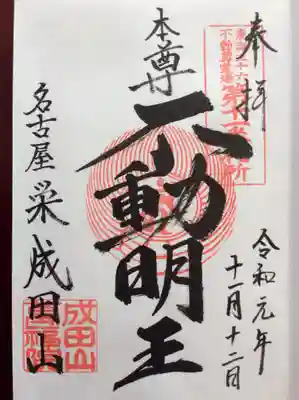 奉拝
東海三十六
不動尊霊場
令和元年
十一月十二日
本尊
不動明王
名古屋栄成田山
成田山